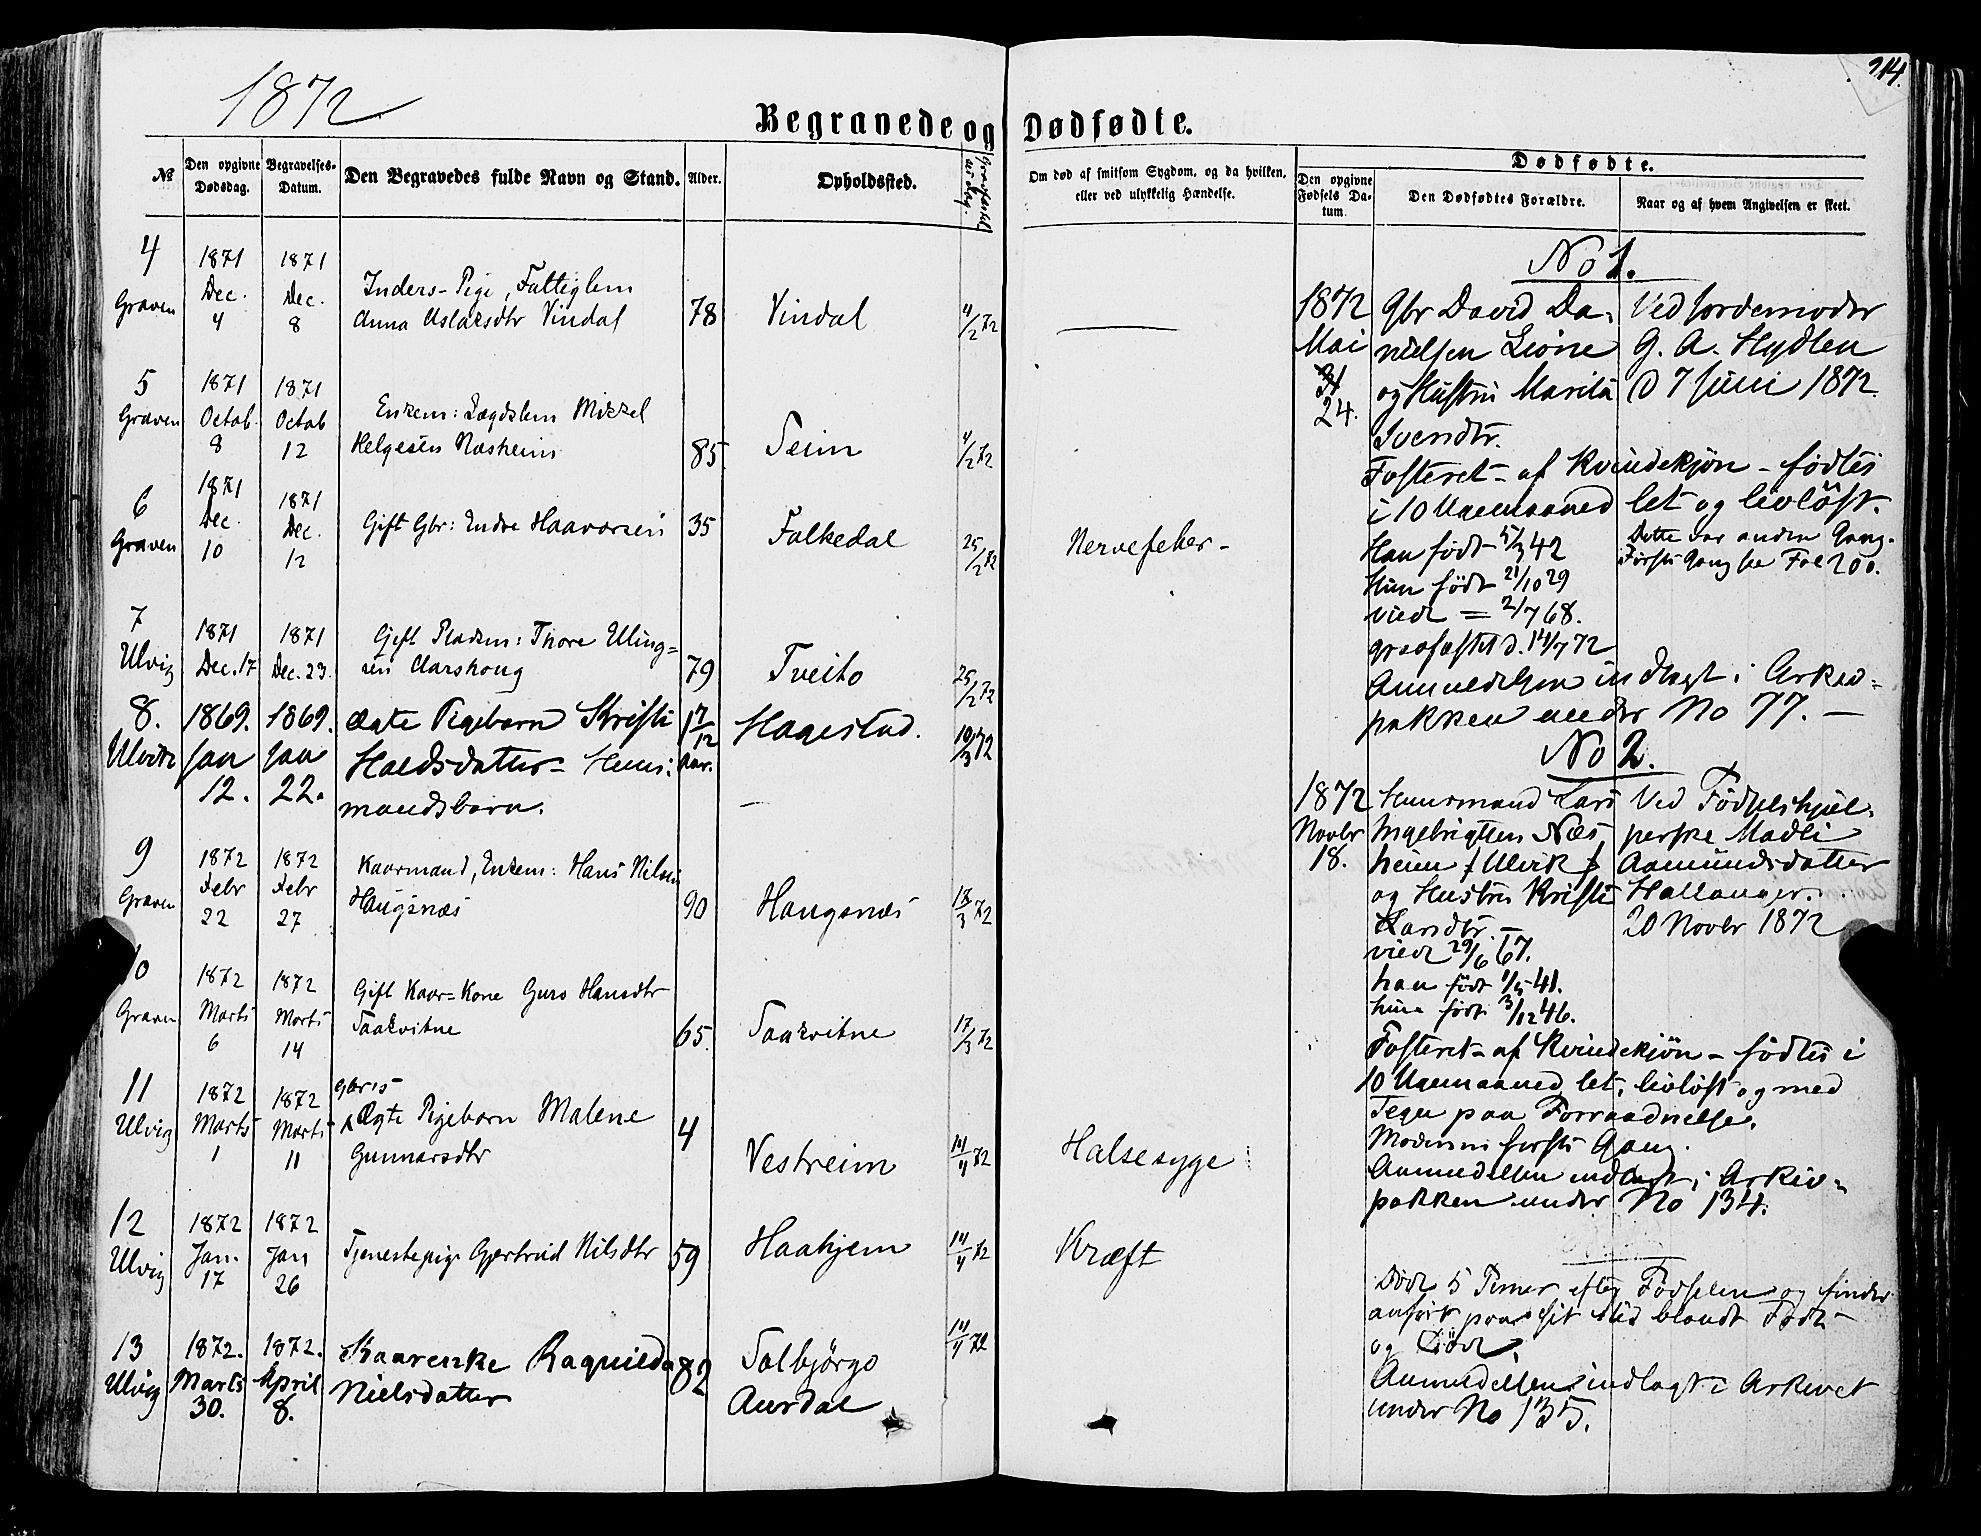 1872
214.
Begravede og Dødfødte.
№
Den opgivne Dødsdag.
Begravelses-Datum.
Den Begravedes fulde Navn og Stand.
Alder.
Opholdssted.
Om død af smitsom Sygdom, og da hvilken, eller ved ulykkelig Hændelse.
Dødfødte.
Den opgivne Fødsels Datum.
Den Dødfødtes Forældre.
Naar og af hvem Angivelsen er skeet.
4 Graven
1871 Dec. 4
1871 Dec. 8
Inders-Pige, Fattiglem
Anna Aslaksdtr Vindal
78
Vindal
11/2 72
5 Graven
1871 Octob. 8
1871 Octob 12
Enkem: Lægdslem Mikkel
Helgesen Næsheim
85.
Seim
11/2 72
6 Graven
1871 Dec. 10
1871 Dec. 12
Gift Gbr: Endre Haavorsen
35
Folkedal
25/2 72
Nervefeber-
7 Ulvig
1871 Dec. 17
1871 Dec. 23
Gift Pladsm: Thore Elling=
sen Aarshoug
79
Tveito
25/2 72
8.
1869. Jan 12.
1869. Jan 22.
ægte Pigebarn Kristi
Holdsdatter- Huus:
mandsbarn.
1 7/12 Aar.
Hagestad.
10/3 72
9 Graven
1872 Febr 22
1872 Febr 27
Kaarmand, Enkem: Hans Nilsen
Haugsnæs
90
Haugsnæs
18/3 72
10 Graven
1872 Marts 6
1872 Marts 14
Gift Kaar=Kone Guro Hansdtr
Saakvitne
65.
Saakvitne
17/3 72
11 Ulvig
1872 Marts 1
1872 Marts 11
Gbr's
Ægte Pigebarn Malene
Gunnarsdtr
4
Vestreim
14/4 72
Halsesyge
12 Ulvig
1872 Jan. 17
1872 Jan 26
Tjenestepige Gjertrud Nilsdtr
59
Haahjem
14/4 72
Kræft
13 Ulvig
1872. Marts 30.
1872. April 8.
Kaarenke Ragnilda
Nielsdatter
82
Solbjørgo
Aurdal
14/4 72
No 1.
1872 Mai 24.
Gbr David Da-
nielsen Lione
og Hustru Marita
Svendtr.
Ved Jordemoder
G. A. Hydlen
d 7 Juni 1872.
Fosteret - af Kvindekjøn - fødtes
i 10 Ugemaaned let og livløst.
Han født 5/3 42
Hun født 21/10 29
viede = 2/7 68.
gravfæstet d. 14/7 72
Dette var anden Gang.
Første Gang se Fol 200.
Anmeldelsen indlagt i Arkiv-
pakken under No 77. -
No 2.
1872 Novbr 18.
Huusmand Lars
Ingebrigtsen Næs
heim / Ulvik /
og Hustru Kristi
Larsdtr. -
viede 29/6 67.
han født 1/5 41.
hun født 3/12 46.
Ved Fødselshjæl-
perske Madli
Aamundsdatter
Hallanger.
20 Novbr 1872
Fosteret - af Kvindekjøn - fødtes i
10 Ugemaaned let, livløst og med
Tegn paa Forraadnelse.
Moderens første Gang.
Anmeldelsen indlagt i Arkiv-
pakken under No 134.
Døde 5 Timer efter Fødselen og findes
anført paa sit Sted blandt Fødte
og Døde.
Anmeldelsen indlagt i Arkivet
under No 135.